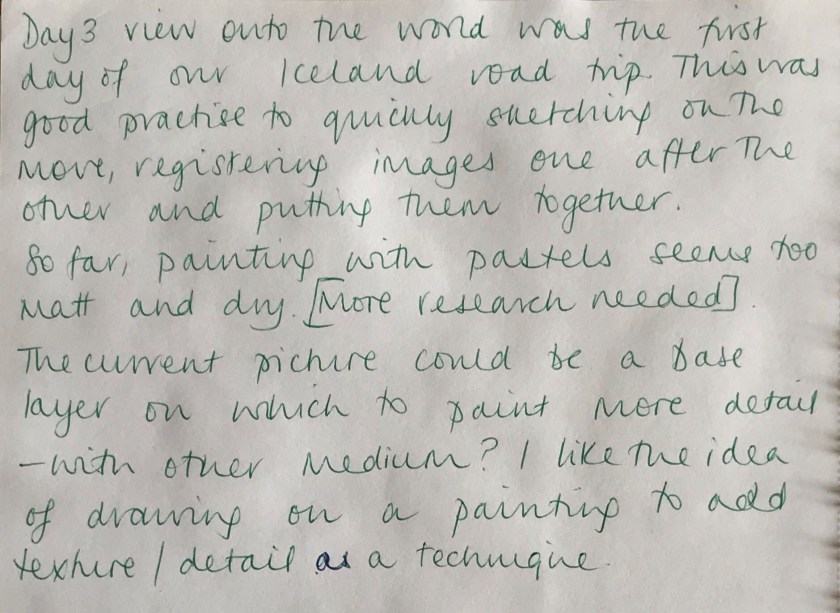 Day 3 view onto the world was the first
day of our Iceland road trip. This was
good practise to quickly sketching on the
move, registering images one after the
other and putting them together.
So far, painting with pastels seems too
matt and dry. [More research needed].
The current picture could be a base
layer on which to paint more detail
– with other medium? I like the idea
of drawing on a painting to add
texture / detail as a technique.